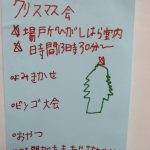 クリスマス会
場戸ケひがしはら案内
日時間13日3時30分〜
よみきかせ
ビンゴ大会
おやつ